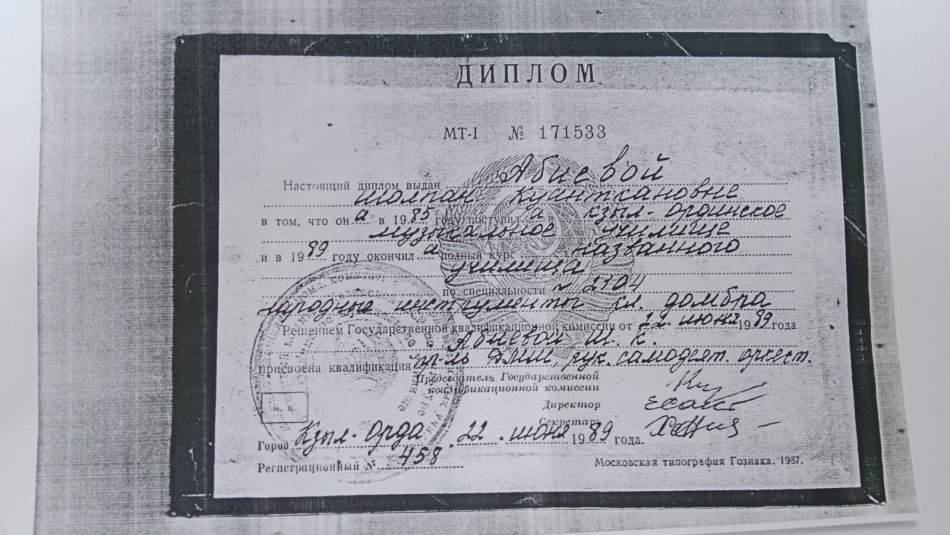 ДИПЛОМ
МТ-I № 171533
Настоящий диплом выдан Абиевой
Шолпан
в том, что он а в 1985 году поступил а в Кзыл-Ординское
музыкальное училище
и в 1989 году окончил а полный курс названного
училища
по специальности № 2104
народные инструменты кл. домбра
Решением Государственной квалификационной комиссии от 22 июня 1989 года
Абиевой Ш. К.
присвоена квалификация пр-ль ДМШ, рук. самодеят. оркест.
Председатель Государственной
квалификационной комиссии
Директор
Секретарь
М. П.
Город Кзыл-Орда 22 июня 1989 года.
Регистрационный № 458
Московская типография Гознака. 1987.